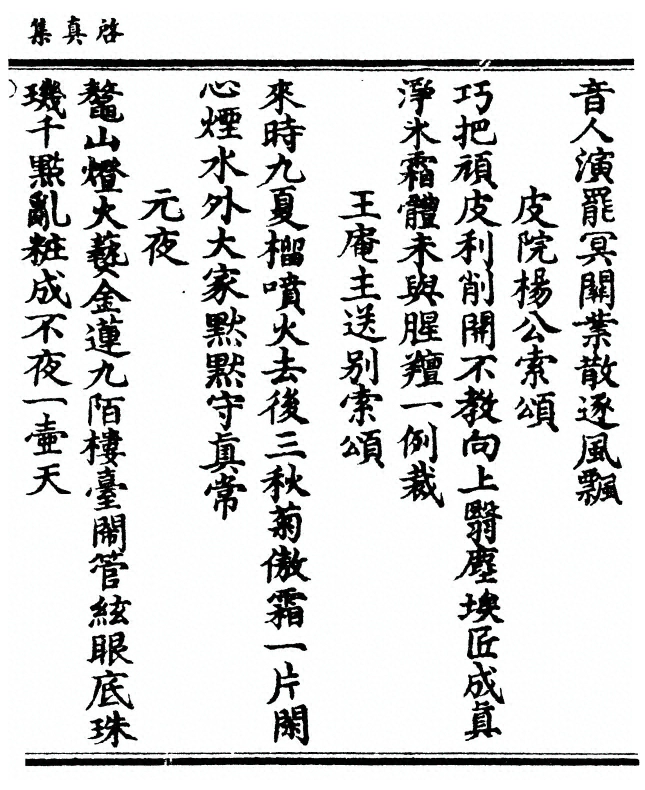 啓真集
音人演罷冥關業散逐風飄
皮院楊公索頌
巧把頑皮利削開不教向上翳塵埃匠成真
淨氷霜體未與腥羶一例裁
王庵主送别索頌
來時九夏榴噴火去後三秋菊傲霜一片閑
心煙水外大家默默守眞常
元夜
鼇山燈火爇金蓮九陌樓臺閙管絃眼底珠
璣千點亂粧成不夜一壷天